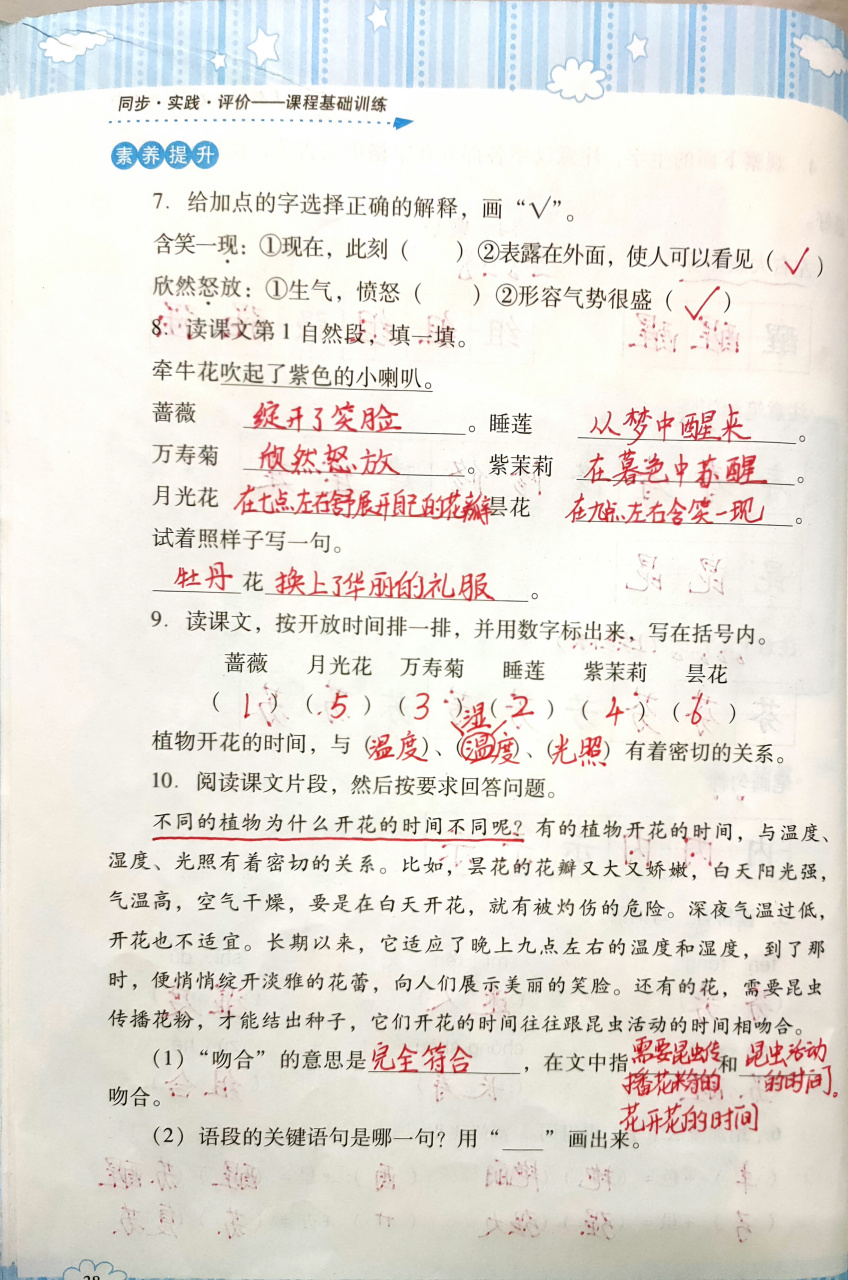 同步·实践·评价——课程基础训练
素养提升
7. 给加点的字选择正确的解释，画“√”。
含笑一现：①现在，此刻（ ）②表露在外面，使人可以看见（√）
欣然怒放：①生气，愤怒（ ）②形容气势很盛（√）
8. 读课文第1自然段，填一填。
牵牛花吹起了紫色的小喇叭。
蔷薇 绽开了笑脸。睡莲 从梦中醒来。
万寿菊 欣然怒放。紫茉莉 在暮色中苏醒。
月光花 在七点左右舒展开自己的花瓣 昙花 在九点左右含笑一现。
试着照样子写一句。
牡丹花换上了华丽的礼服。
9. 读课文，按开放时间排一排，并用数字标出来，写在括号内。
蔷薇 月光花 万寿菊 睡莲 紫茉莉 昙花
（1）（5）（3）（2）（4）（6）
湿
植物开花的时间，与（温度）、（温度）、（光照）有着密切的关系。
10. 阅读课文片段，然后按要求回答问题。
不同的植物为什么开花的时间不同呢？有的植物开花的时间，与温度、
湿度、光照有着密切的关系。比如，昙花的花瓣又大又娇嫩，白天阳光强，
气温高，空气干燥，要是在白天开花，就有被灼伤的危险。深夜气温过低，
开花也不适宜。长期以来，它适应了晚上九点左右的温度和湿度，到了那
时，便悄悄绽开淡雅的花蕾，向人们展示美丽的笑脸。还有的花，需要昆虫
传播花粉，才能结出种子，它们开花的时间往往跟昆虫活动的时间相吻合。
（1）“吻合”的意思是完全符合，在文中指需要昆虫传播花粉的花开花的时间和昆虫活动的时间。
吻合。
（2）语段的关键语句是哪一句？用“___”画出来。